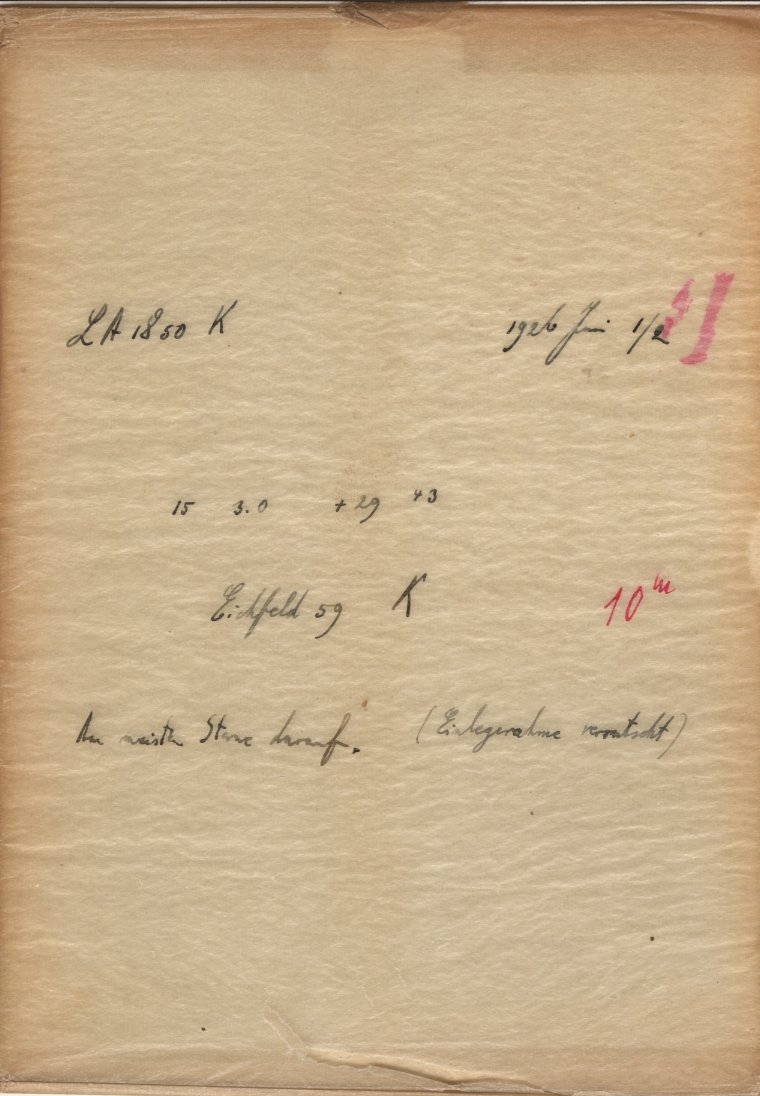 LA 1850 K 1926 Juni 1/2
15 3.0 +29 43
Eichfeld 59 K 10ᵐ
Am meisten Sterne darauf. (Einlegerahme verrutscht)